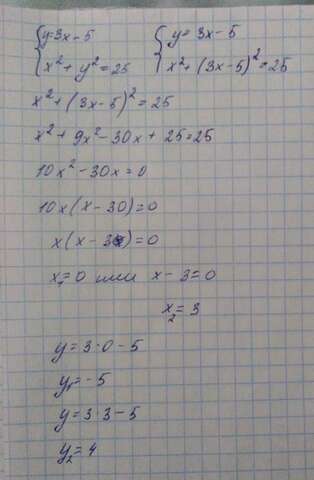 { y=3x-5    { y = 3x-5
{ x² + y² = 25    { x² + (3x-5)² = 25
x² + (3x-5)² = 25
x² + 9x² - 30x + 25 = 25
10x² - 30x = 0
10x (x - 30) = 0
x (x - 3) = 0
x₁ = 0 или x - 3 = 0
x₂ = 3
y = 3·0 - 5
y₁ = -5
y = 3·3 - 5
y₂ = 4